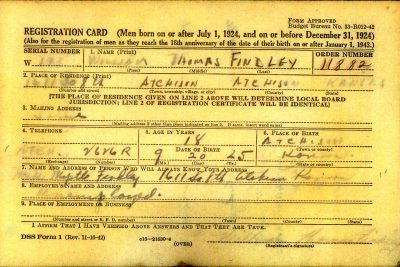 FORM APPROVED
Budget Bureau No. 33-R012-42
REGISTRATION CARD (Men born on or after July 1, 1924, and on or before December 31, 1924)
(Also for the registration of men as they reach the 18th anniversary of the date of their birth on or after January 1, 1943.)
SERIAL NUMBER 1. NAME (Print) ORDER NUMBER
W WILLIAM THOMAS FINDLEY 11882
(First) (Middle) (Last)
2. PLACE OF RESIDENCE (Print)
8th ATCHISON ATCHISON KANSAS
(Number and street) (Town, township, village, or city) (County) (State)
[THE PLACE OF RESIDENCE GIVEN ON LINE 2 ABOVE WILL DETERMINE LOCAL BOARD
JURISDICTION; LINE 2 OF REGISTRATION CERTIFICATE WILL BE IDENTICAL]
3. MAILING ADDRESS
Same
[Mailing address if other than place indicated on line 2. If same, insert word same]
4. TELEPHONE 5. AGE IN YEARS 6. PLACE OF BIRTH
18 ATCHISON
DATE OF BIRTH (Town or county)
9 20 25
(Exchange) (Number) (Mo.) (Day) (Yr.) (State or country)
7. NAME AND ADDRESS OF PERSON WHO WILL ALWAYS KNOW YOUR ADDRESS
Findley 1611 So 8th Atchison
8. EMPLOYER'S NAME AND ADDRESS
9. PLACE OF EMPLOYMENT OR BUSINESS
(Number and street or R. F. D. number) (Town) (County) (State)
I AFFIRM THAT I HAVE VERIFIED ABOVE ANSWERS AND THAT THEY ARE TRUE.
DSS Form 1 (Rev. 11-16-42) (OVER) (Registrant's signature)